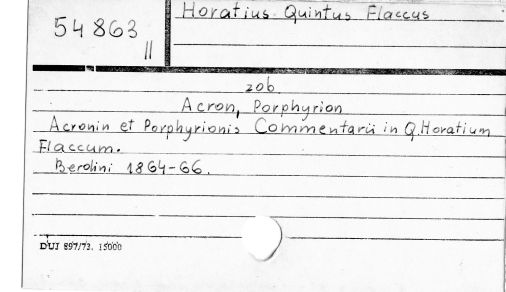 Horatius Quintus Flaccus
54 863
II
zob.
Acron, Porphyrion
Acronin et Porphyrionis Commentarii in Q. Horatium
Flaccum.
Berolini 1864-66.
DUJ 897/73. 15000